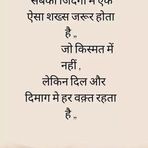 सबकी जिंदगी में एक
ऐसा शख्स जरूर होता
है ,,
जो किस्मत में
नहीं ,
लेकिन दिल और
दिमाग मे हर वक़्त रहता
है ,,